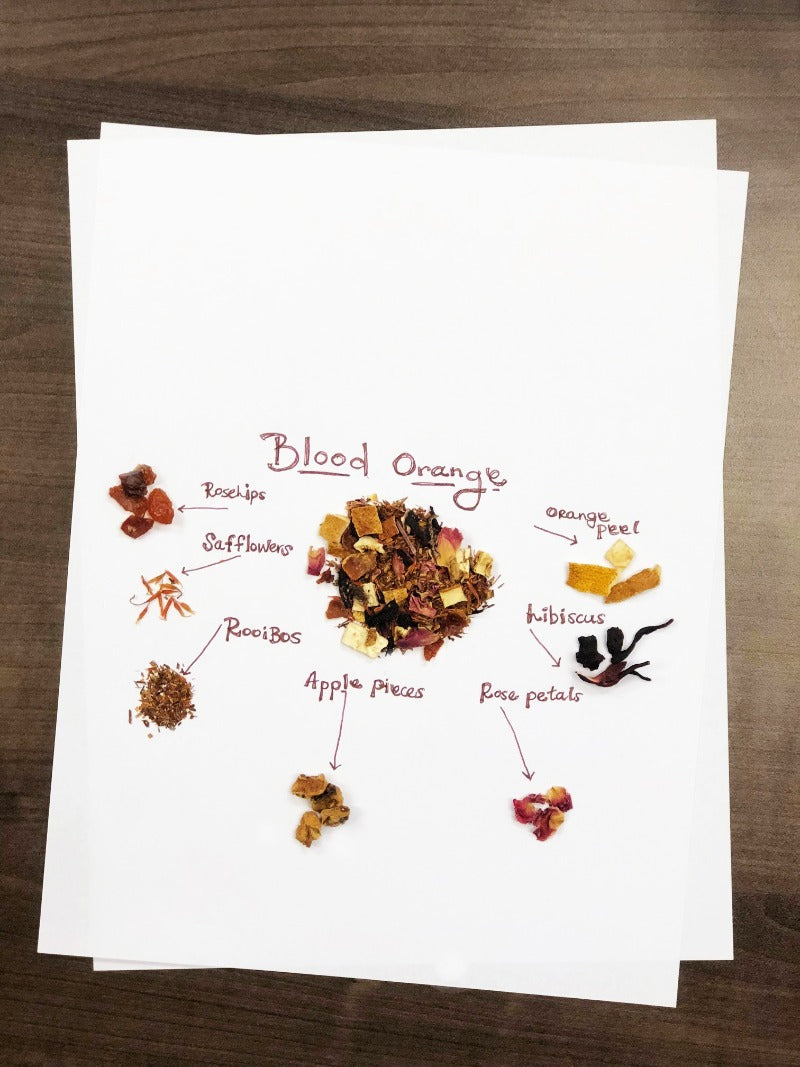 Blood Orange
Rosehips
Safflowers
RooiBos
Apple pieces
Rose petals
hibiscus
orange
peel